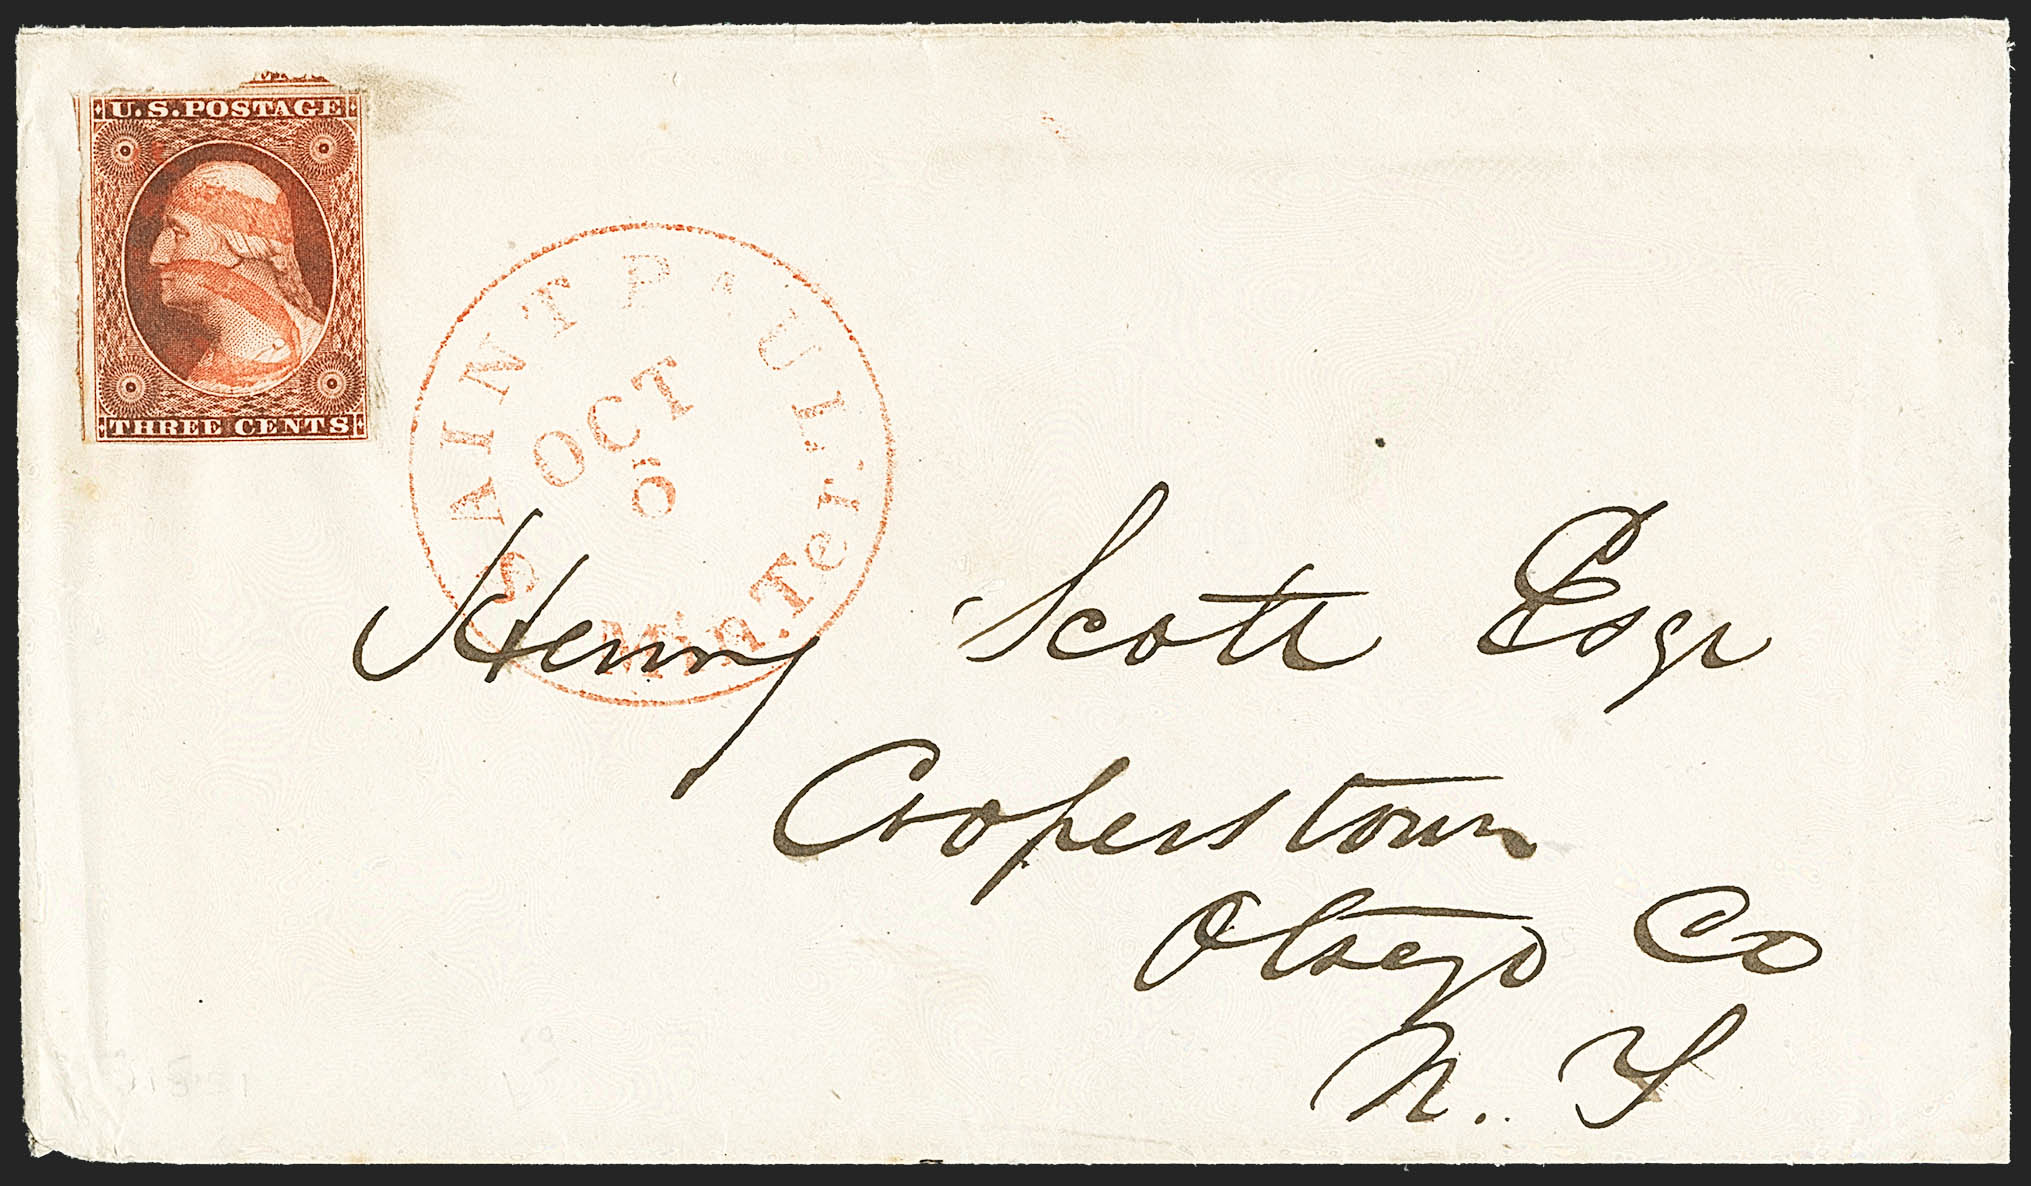 U.S. POSTAGE
THREE CENTS
SAINT PAUL.
Min. Ter.
OCT
Henry Scott Esqr
Cooperstown
Otsego Co
N. Y